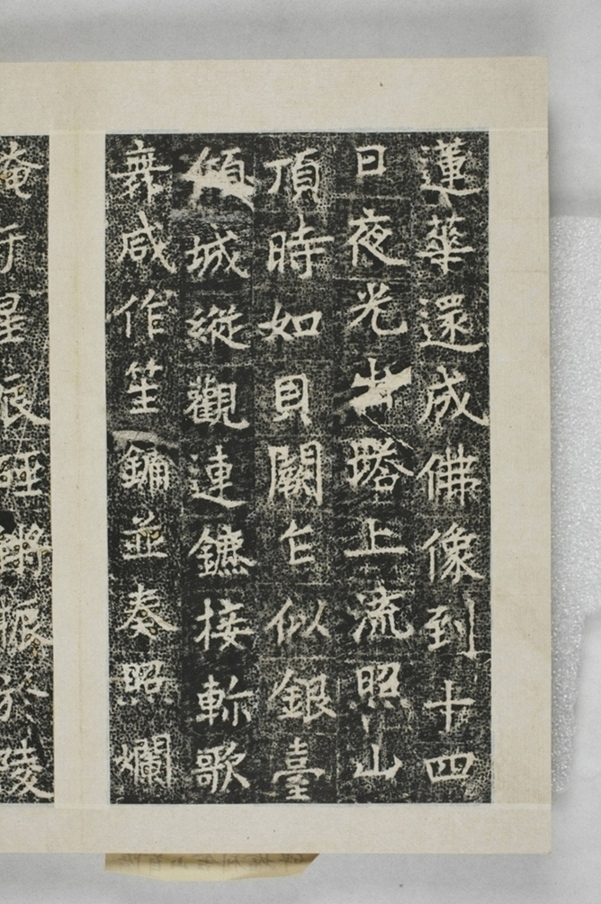 蓮華還成佛像到十四
日夜光出塔上流照山
頂時如貝闕乍似銀臺
傾城縱觀連鑣接軫歌
舞咸作笙鏞並奏照爛
行星辰振於陵